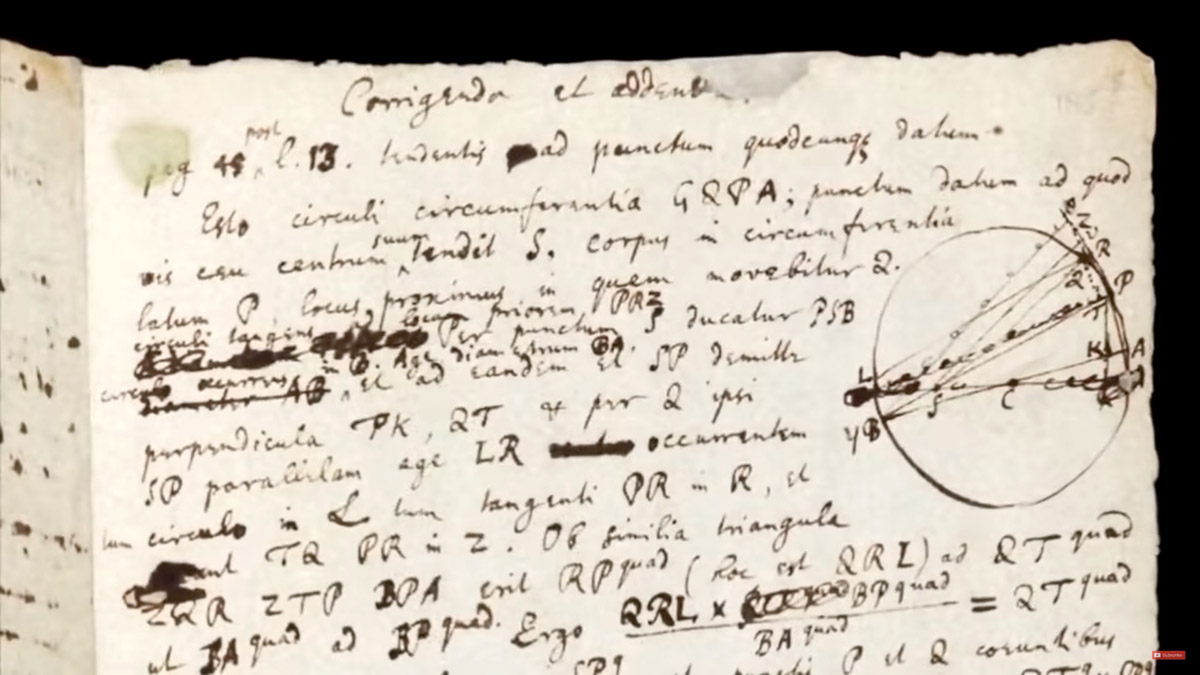 Corrigenda et addenda.
pag 45, post l. 13. tendentis ad punctum quodcunq; datum.
Esto circuli circumferentia GQPA; punctum datum ad quod
vis ceu centrum suum tendit S. corpus in circumferentia
latum P, locus proximus in quem movebitur Q.
circuli tangens locum priorem PRZ
Per punctum S ducatur PSB
circulo occurrens in B. Age diametrum BA.
et ad eandem et SP demitte
perpendicula PK, QT & per Q ipsi
SP parallelam age LR occurrentem
tum circulo in L tum tangenti PR in R, et
TQ PR in Z. Ob similia triangula
ZQR ZTP BPA erit RP quad (hoc est QRL) ad QT quad
ut BA quad ad BP quad. Ergo QRL × BP quad = QT quad
BA quad
SPq
P et Q coeuntibus
Z
R
Q
P
T
K
A
L
S
C
YB
Subscribe